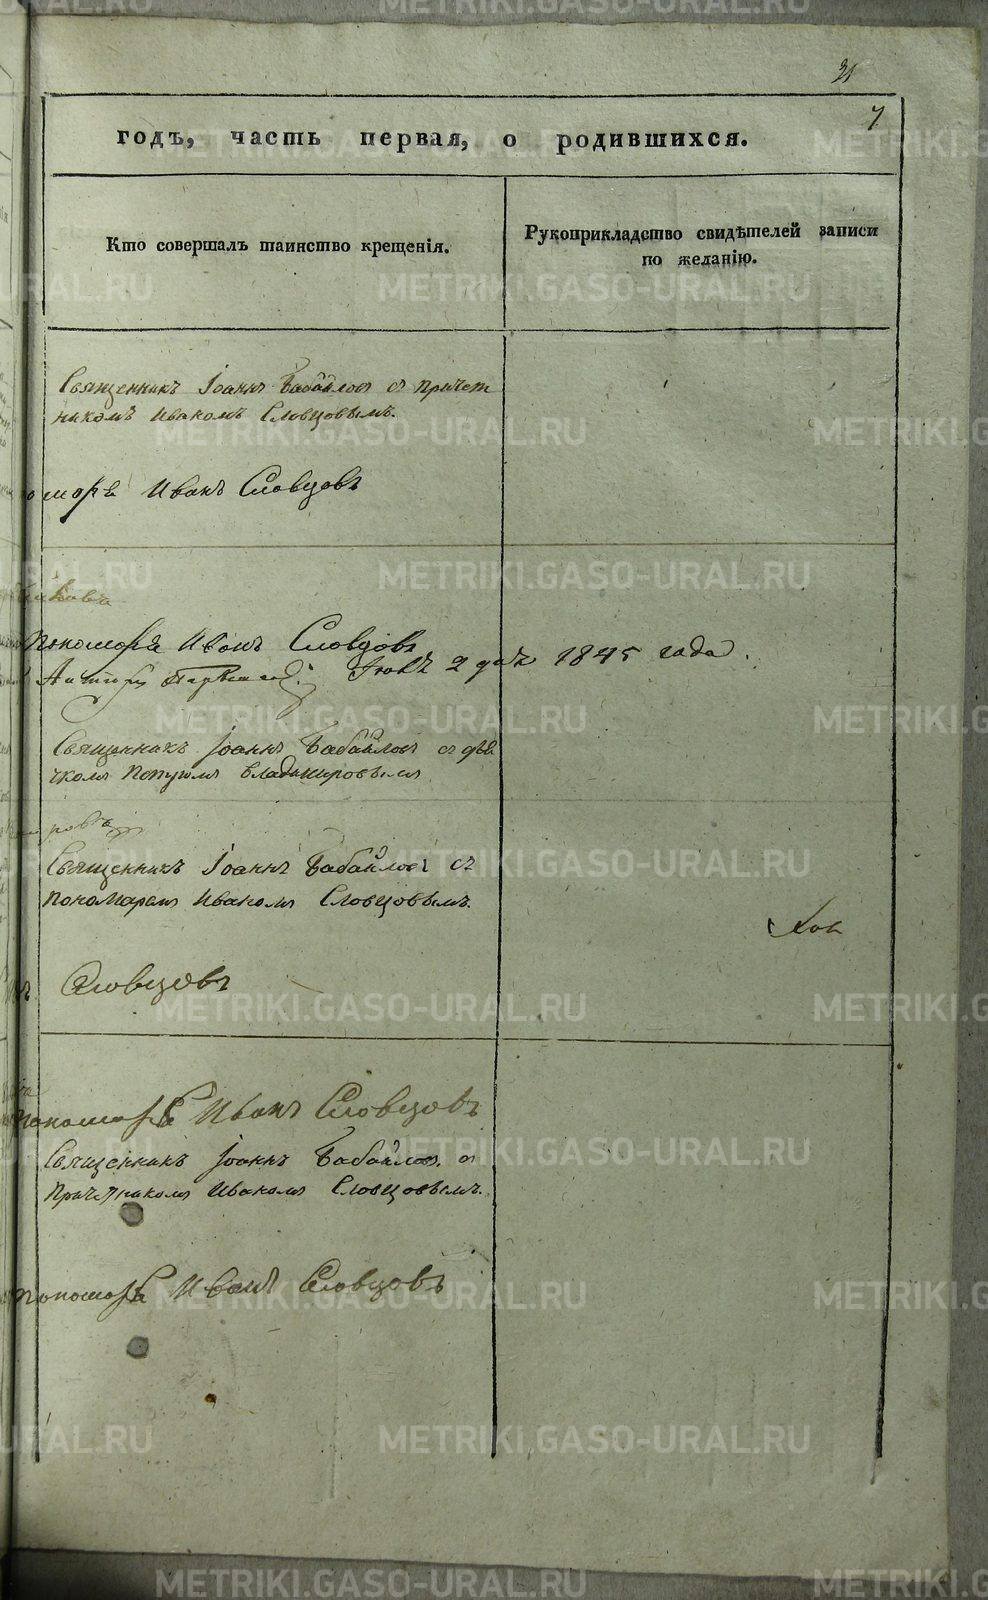 31
7
годъ, часть первая, о родившихся.
Кто совершалъ таинство крещенія.
Рукоприкладство свидѣтелей записи
по желанію.
Священникъ Іоаннъ Бабайловъ съ причет
никомъ Иваномъ Словцовымъ.
Иванъ Словцовъ
Пономарь Иванъ Словцовъ
2 1845 года.
Священникъ Іоаннъ Бабайловъ съ дья
чкомъ Владимировымъ
Священникъ Іоаннъ Бабайловъ съ
пономаремъ Иваномъ Словцовымъ.
Словцовъ
Пономарь Иванъ Словцовъ
Священникъ Іоаннъ Бабайловъ съ
Причетникомъ Иваномъ Словцовымъ.
Пономарь Иванъ Словцовъ
METRIKI.GASO-URAL.RU